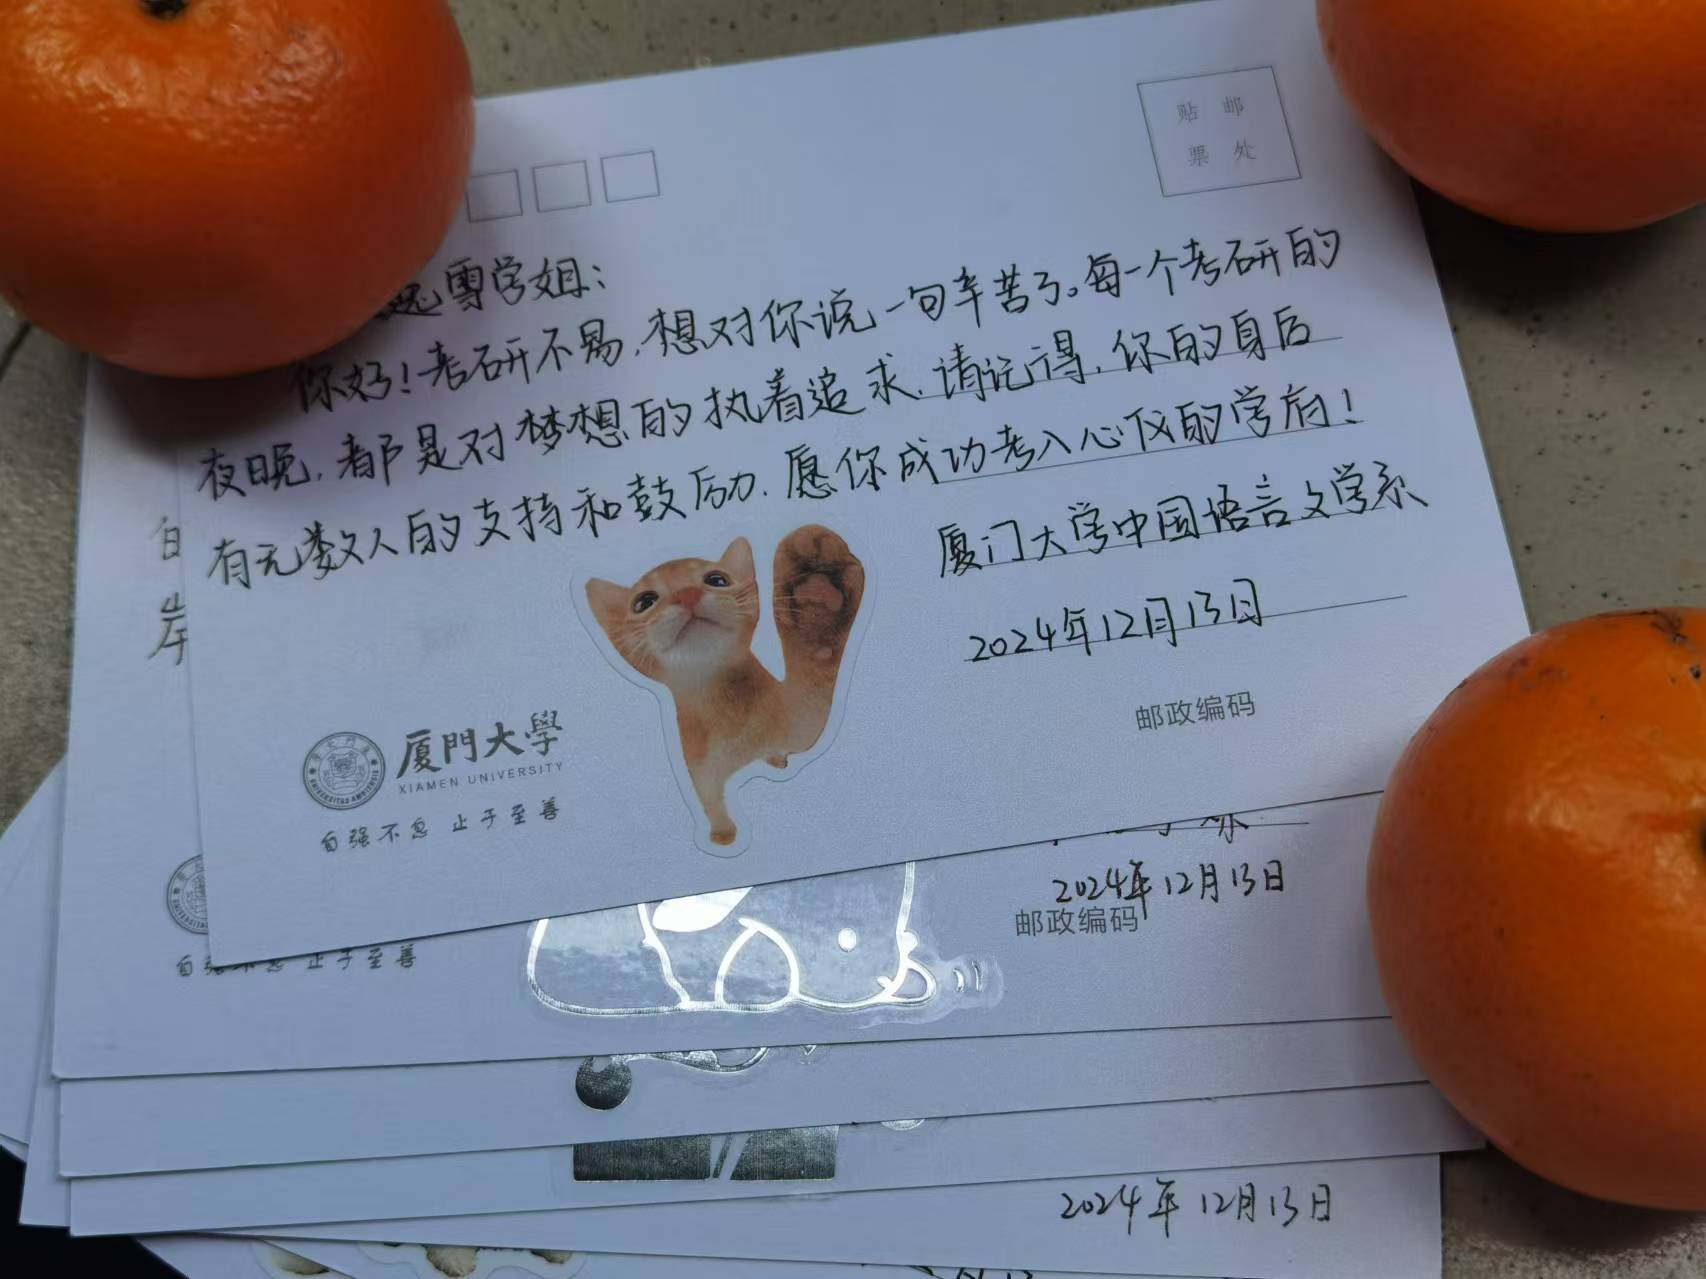 贴 邮
票 处
雪学姐:
你好!考研不易,想对你说一句辛苦了。每一个考研的
夜晚,都是对梦想的执着追求,请记得,你的身后
有无数人的支持和鼓励,愿你成功考入心仪的学府!
厦门大学中国语言文学系
2024年12月13日
邮政编码
厦門大學
XIAMEN UNIVERSITY
自强不息 止于至善
岸
2024年12月13日
邮政编码
止于至善
2024年12月13日